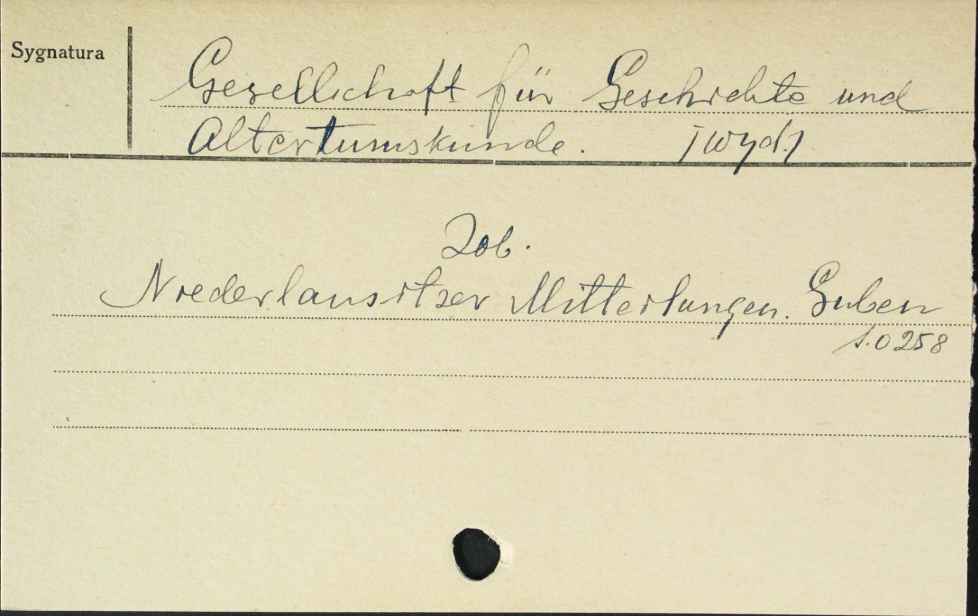 Sygnatura
Gesellschaft für Geschichte und
Altertumskunde. /wyd./
Zob.
Niederlausitzer Mitteilungen. Guben
1.0258